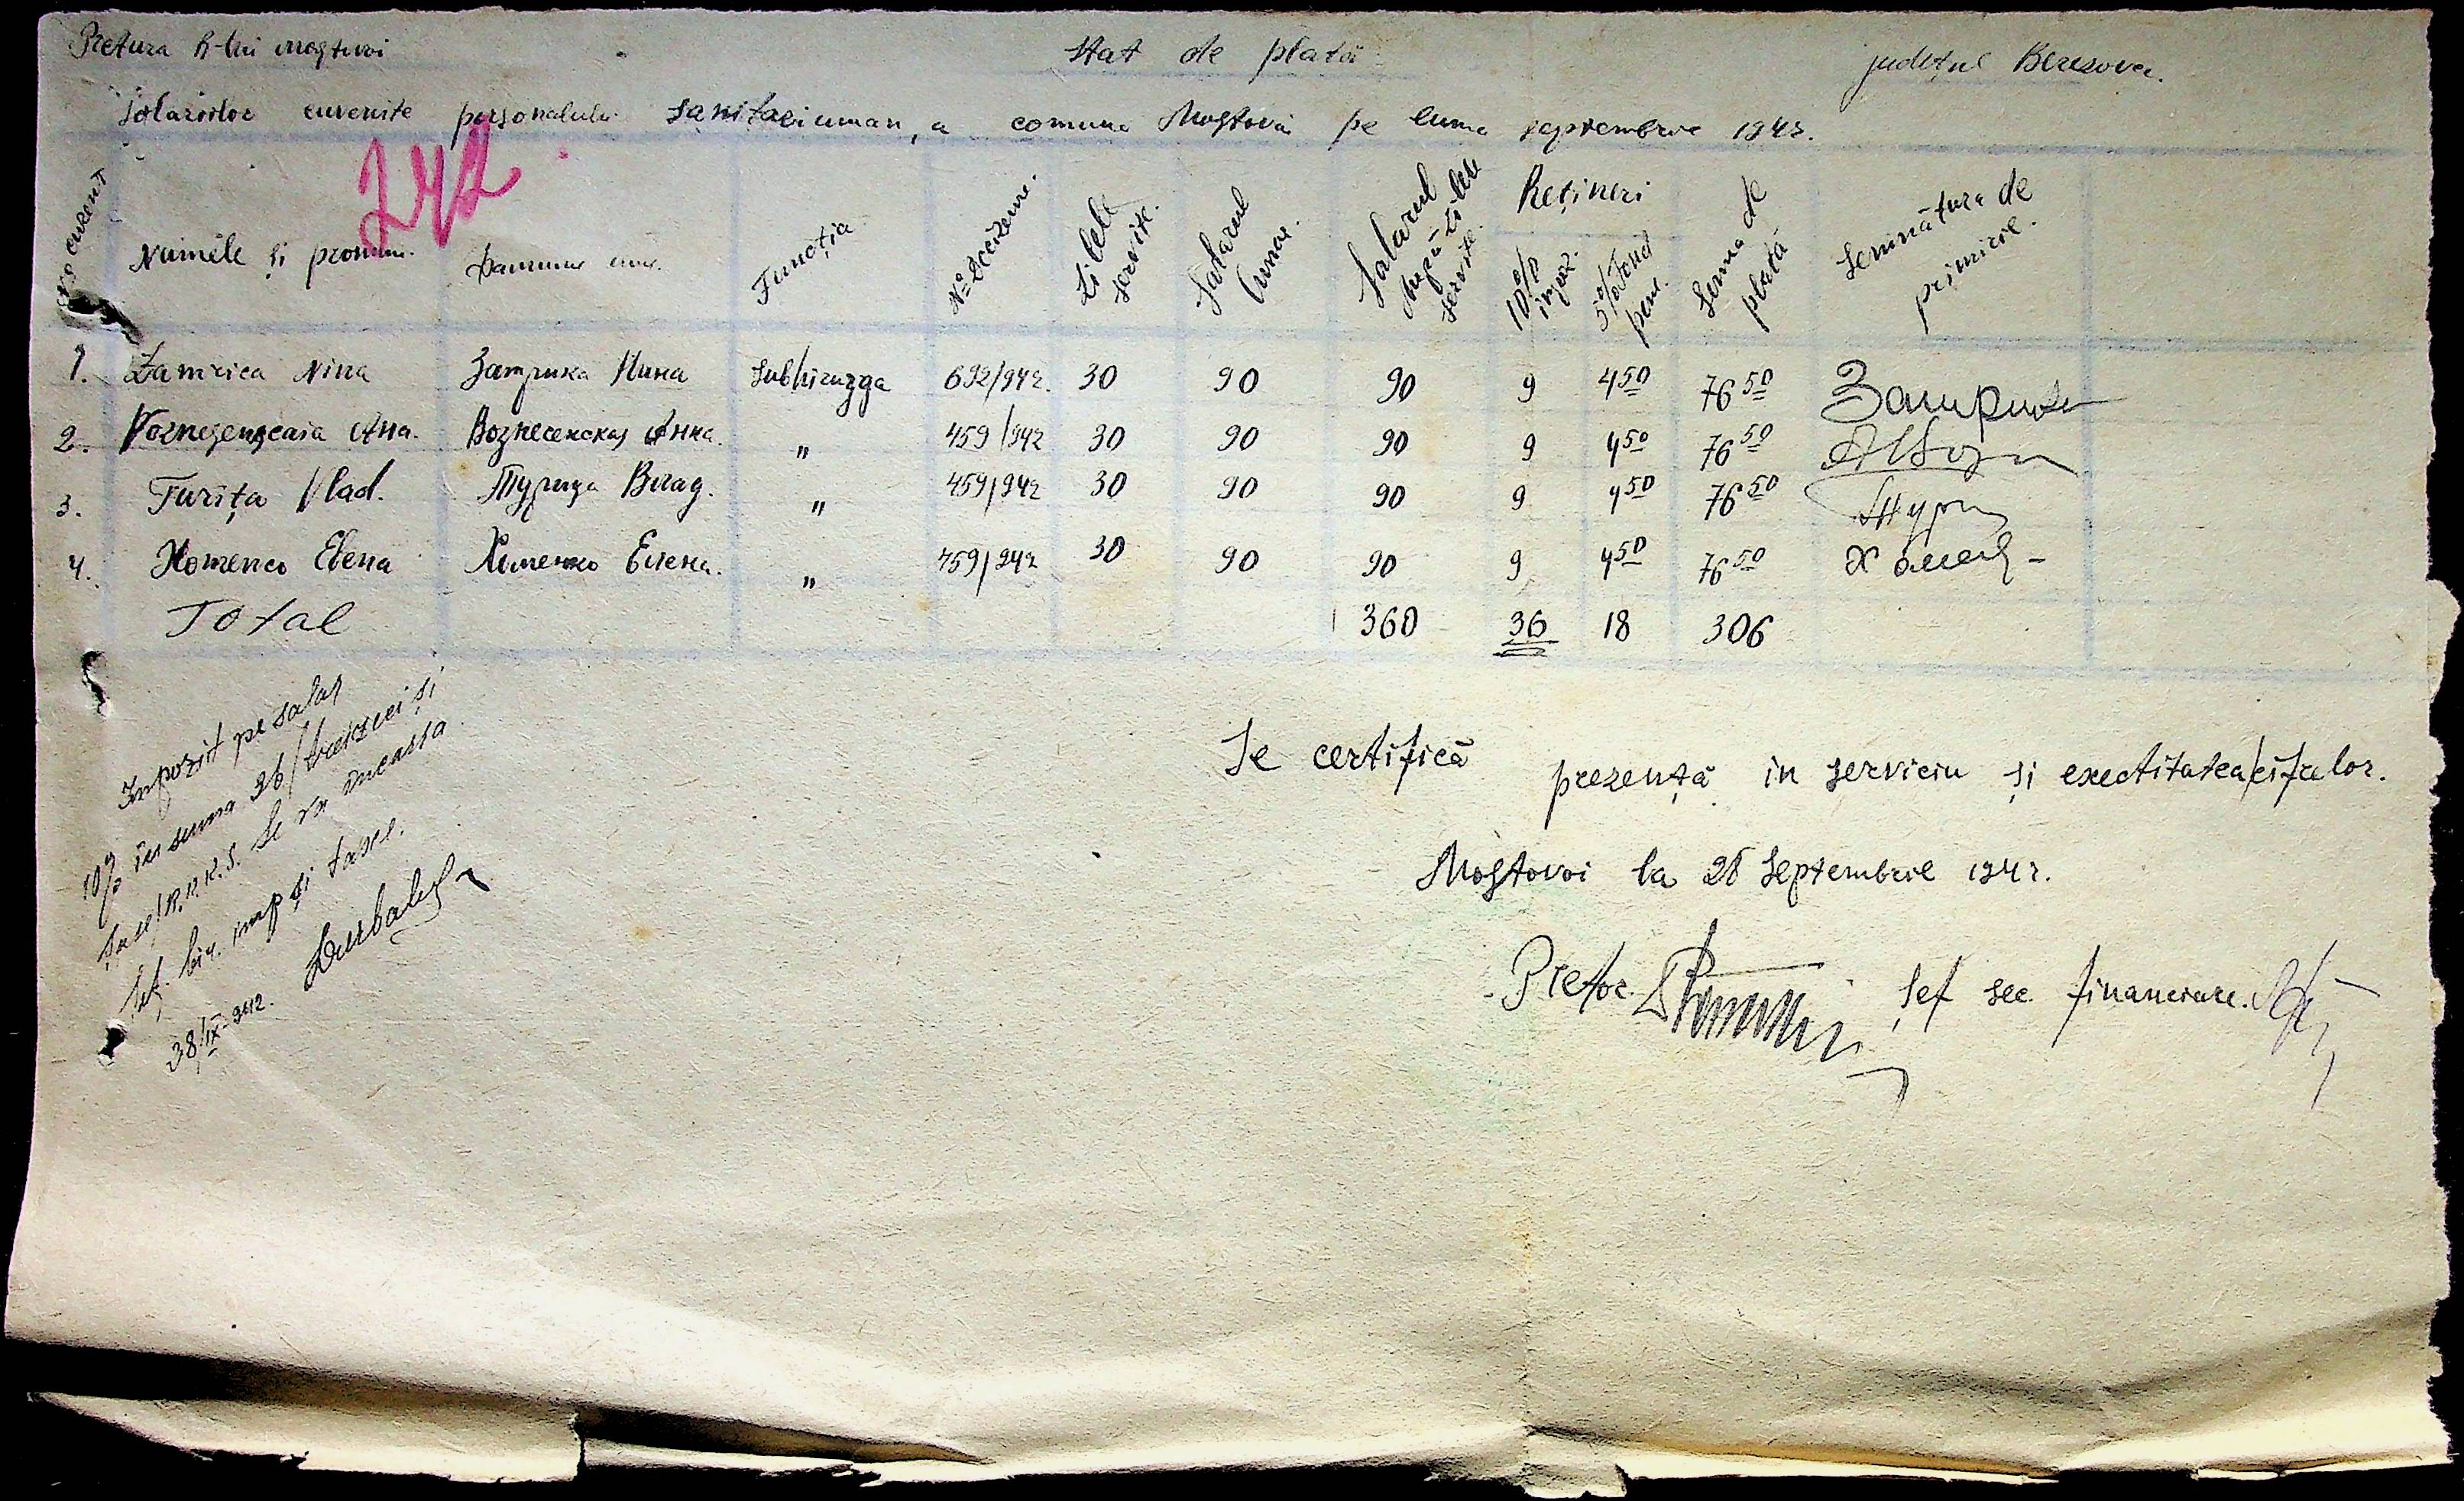 Pretura R-lui Mostovoi Stat de plată județul Berezovca.
Salariilor cuvenite personalului sanitar uman, a comuna Mostovoi pe luna septembrie 1942.
242
No curent Numele și pronum. Фамилие имя. Funcția No Decizeme. Zilele servite. Salarul lunar. Salarul după zilele servite. Rețineri 10% impoz. 5% Fond pens. Suma de plată Semnătura de primire.
1. Zamrica Nina Замрика Нина Subhirurga 692/942. 30 90 90 9 4 50 76 50 Замрика
2. Voznesenscaia Ana. Вознесенская Анна. " 459/942 30 90 90 9 4 50 76 50
3. Turița Vlad. Турица Влад. " 459/942 30 90 90 9 4 50 76 50 Тури
4. Homenco Elena Хоменко Елена. " 459/942 30 90 90 9 4 50 76 50 Хомен
Total 360 36 18 306
Impozit pe salar
10% în suma 36/treizeci și
șase/R.K.K.S. Se va încassa
Șef. bir. imp și taxe.
28/IX-942.
Se certifică prezență in serviciu și exectitatea cifrelor.
Mostovoi la 28 Septembrie 1942.
Pretor Șef sec. financiare.